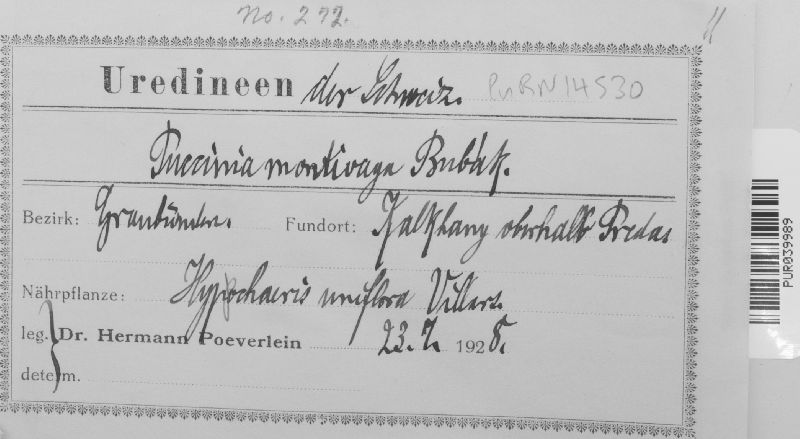 No. 272.
Uredineen der Schweiz. PuRN14530
Puccinia montivaga Bubák.
Bezirk: Graubünden. Fundort: Kalkhang oberhalb Preda
Nährpflanze: Hypochaeris uniflora Villars.
leg. Dr. Hermann Poeverlein 23.7. 1928.
determ.
PUR039989